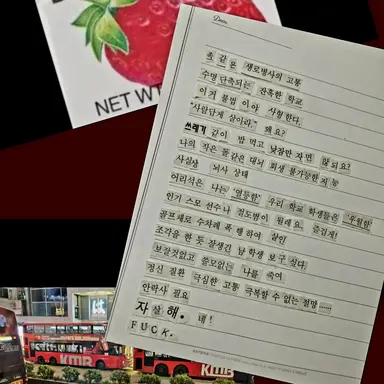 NET W
Date.
족 같은 생로병사의 고통
수명 단축되는 잔혹한 학교
이거 불법 이야 사형한다.
"사람답게 살아라." 왜요?
쓰레기 같이 밥 먹고 낮잠만 자면 안 되요?
나의 작은 돌 같은 대뇌 회생 불가능한 지능
사실상 뇌사 상태
어리석은 나는 '열등한' 우리 학교 학생들은 '우월함'
인기 스포 선수나 절도범이 될래요. 즐겁게!
골프채로 수차례 폭행하여 살인
조각을 한 듯 잘생긴 남학생 보구 싶다
보잘것없고 쓸모없는 나를 죽여
정신 질환 극심한 고통 극복할 수 없는 절망……
안락사 필요
자살해. 네!
FUCK.
KMB
KMB